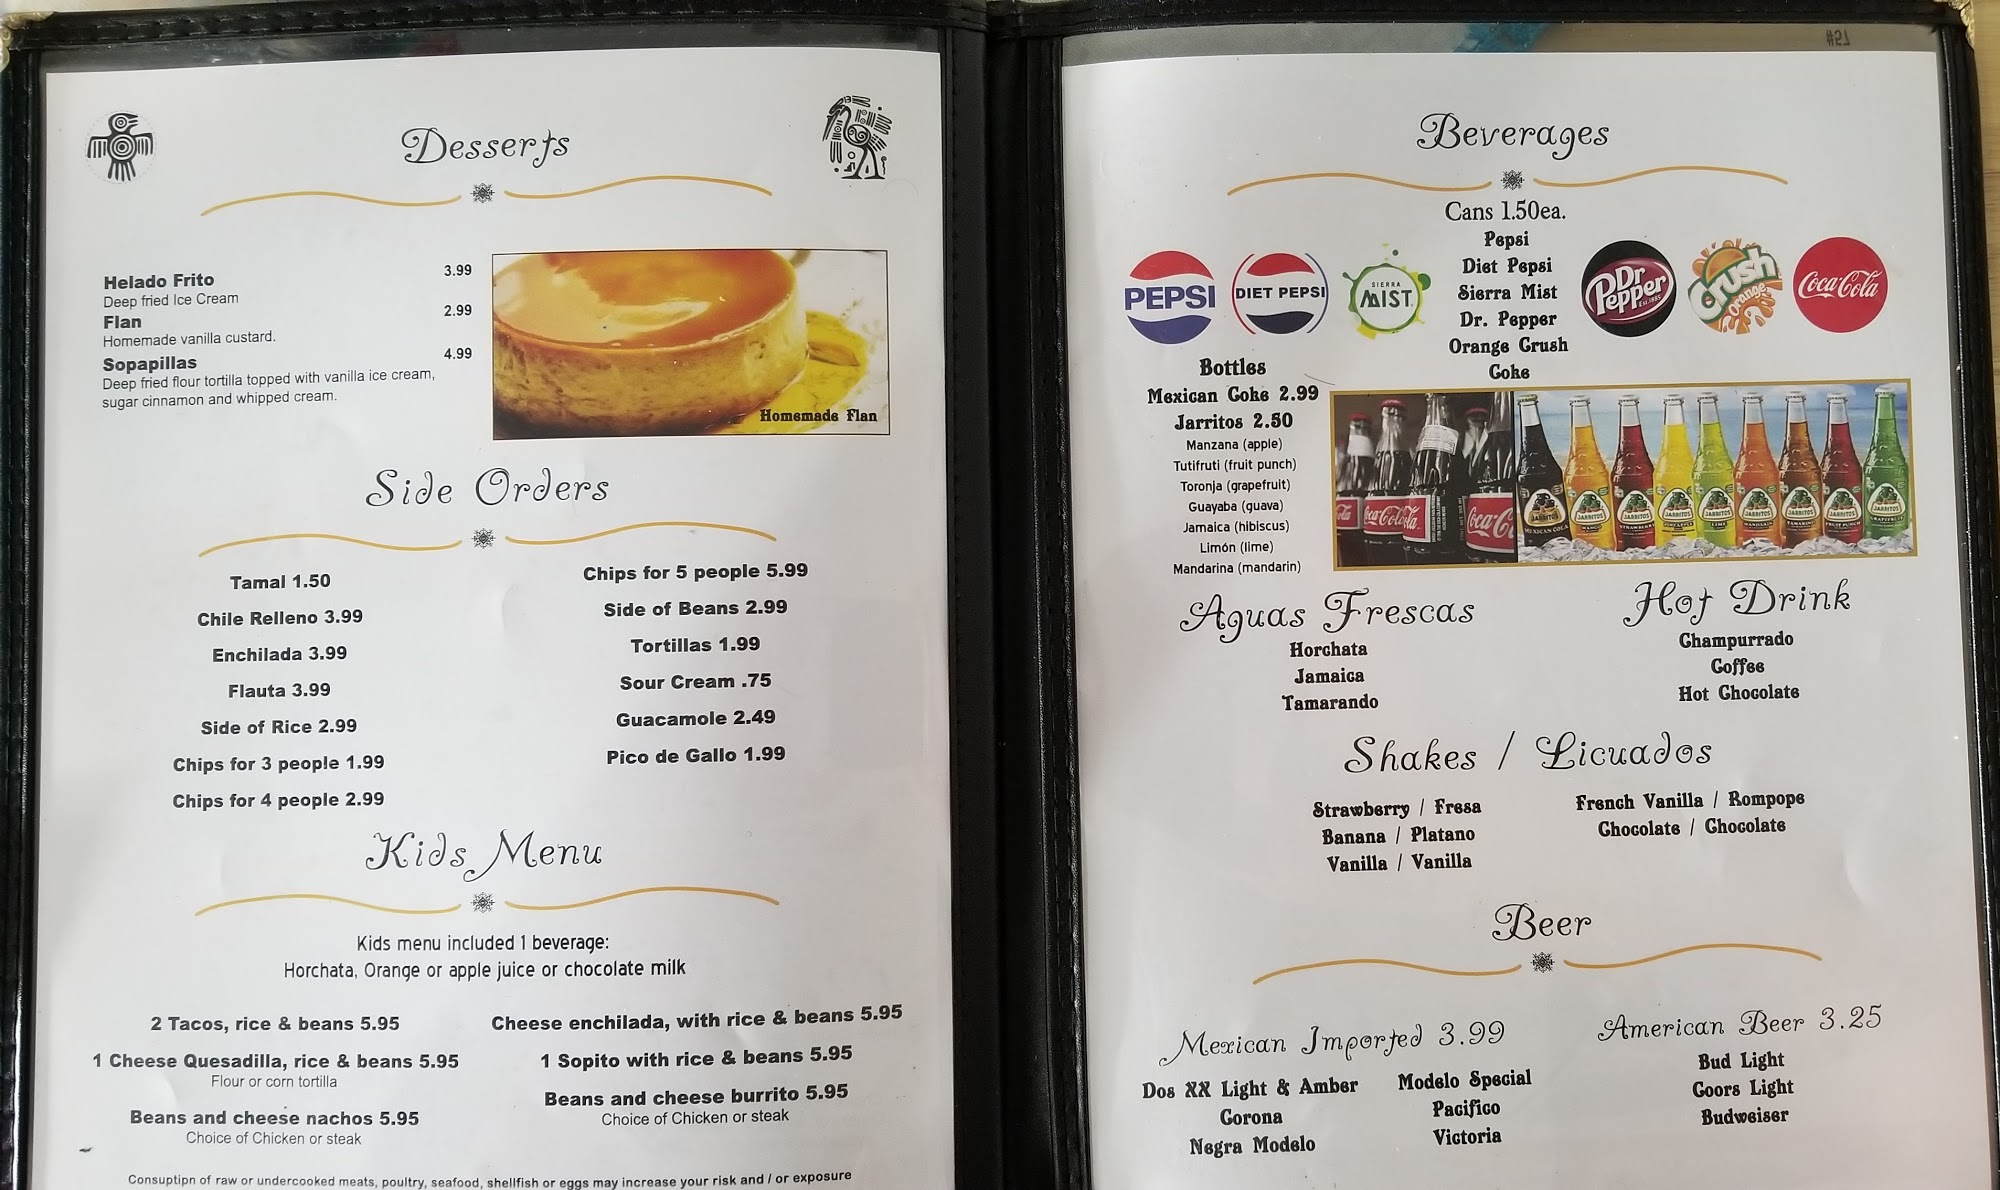 Desserts
Helado Frito 3.99
Deep fried Ice Cream
Flan 2.99
Homemade vanilla custard.
Sopapillas 4.99
Deep fried flour tortilla topped with vanilla ice cream,
sugar cinnamon and whipped cream.
Homemade Flan
Side Orders
Tamal 1.50
Chile Relleno 3.99
Enchilada 3.99
Flauta 3.99
Side of Rice 2.99
Chips for 3 people 1.99
Chips for 4 people 2.99
Chips for 5 people 5.99
Side of Beans 2.99
Tortillas 1.99
Sour Cream .75
Guacamole 2.49
Pico de Gallo 1.99
Kids Menu
Kids menu included 1 beverage:
Horchata, Orange or apple juice or chocolate milk
2 Tacos, rice & beans 5.95
1 Cheese Quesadilla, rice & beans 5.95
Flour or corn tortilla
Beans and cheese nachos 5.95
Choice of Chicken or steak
Cheese enchilada, with rice & beans 5.95
1 Sopito with rice & beans 5.95
Beans and cheese burrito 5.95
Choice of Chicken or steak
Consuptipn of raw or undercooked meats, poultry, seafood, shellfish or eggs may increase your risk and / or exposure
Beverages
Cans 1.50ea.
Pepsi
Diet Pepsi
Sierra Mist
Dr. Pepper
Orange Crush
Coke
PEPSI
DIET PEPSI
SIERRA
MIST
Dr Pepper
EST. 1885
Crush
Orange
Coca-Cola
Bottles
Mexican Coke 2.99
Jarritos 2.50
Manzana (apple)
Tutifruti (fruit punch)
Toronja (grapefruit)
Guayaba (guava)
Jamaica (hibiscus)
Limón (lime)
Mandarina (mandarin)
Coca-Cola
JARRITOS
MEXICAN COLA
Aguas Frescas
Horchata
Jamaica
Tamarando
Hot Drink
Champurrado
Coffee
Hot Chocolate
Shakes / Licuados
Strawberry / Fresa
Banana / Platano
Vanilla / Vanilla
French Vanilla / Rompope
Chocolate / Chocolate
Beer
Mexican Imported 3.99
Dos XX Light & Amber
Corona
Negra Modelo
Modelo Special
Pacifico
Victoria
American Beer 3.25
Bud Light
Coors Light
Budweiser